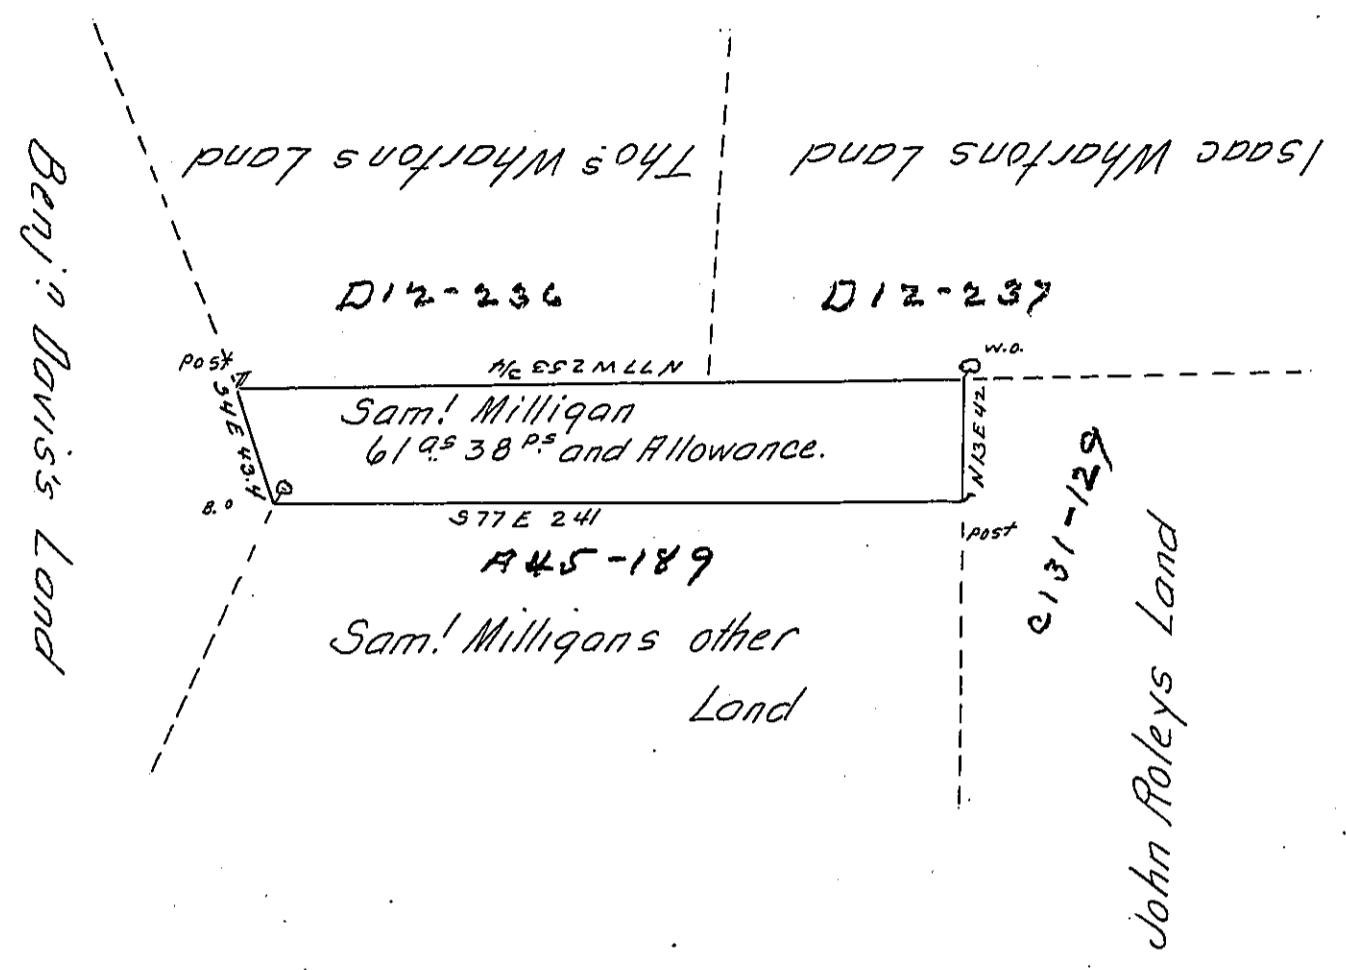 Isaac Whartons Land
Tho.s Whartons Land
Benj.n Davis's Land
D12-236
D12-237
Post
W.O.
N77W 253 3/4
S4E 43.4
N13E42
Sam.l Milligan
61 a.s 38 p.s and Allowance.
B.O
S77E 241
Post
A45-189
C131-129
Sam.l Milligans other
Land
John Roleys Land